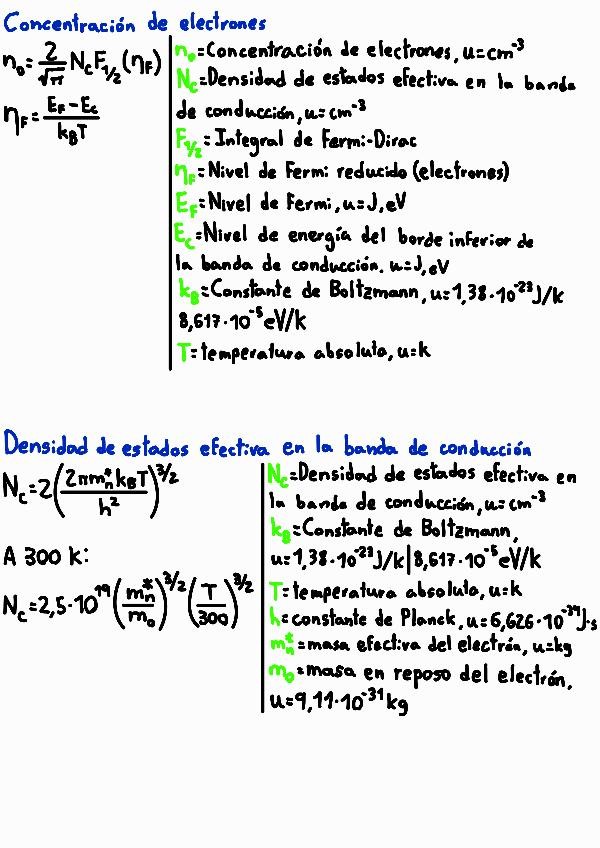 Concentración de electrones
n₀ = 2/√π N_C F_1/2 (η_F)
η_F = (E_F − E_C)/(k_B T)
n₀ = Concentración de electrones, u = cm⁻³
N_C = Densidad de estados efectiva en la banda
de conducción, u = cm⁻³
F_1/2 = Integral de Fermi-Dirac
η_F = Nivel de Fermi reducido (electrones)
E_F = Nivel de Fermi, u = J, eV
E_C = Nivel de energía del borde inferior de
la banda de conducción. u = J, eV
k_B = Constante de Boltzmann, u = 1,38·10⁻²³ J/k
8,617·10⁻⁵ eV/k
T = temperatura absoluta, u = k
Densidad de estados efectiva en la banda de conducción
N_C = 2 (2πm*_n k_B T / h²)^3/2
A 300 k:
N_C = 2,5·10¹⁹ (m*_n / m₀)^3/2 (T / 300)^3/2
N_C = Densidad de estados efectiva en
la banda de conducción, u = cm⁻³
k_B = Constante de Boltzmann,
u = 1,38·10⁻²³ J/k | 8,617·10⁻⁵ eV/k
T = temperatura absoluta, u = k
h = constante de Planck, u = 6,626·10⁻³⁴ J·s
m*_n = masa efectiva del electrón, u = kg
m₀ = masa en reposo del electrón,
u = 9,11·10⁻³¹ kg